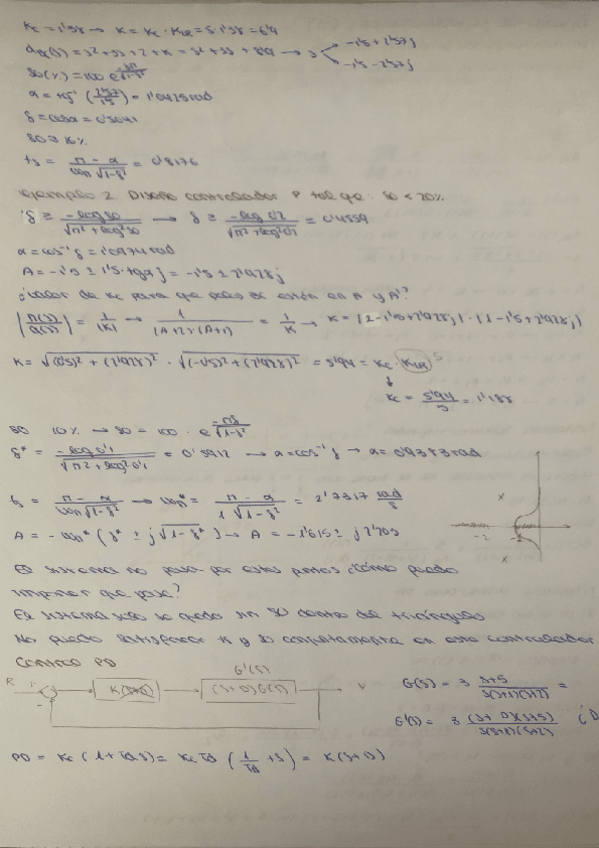 Kc = 1'38 → K = Kc · KLR = 5·1'38 = 6'9
dcl(s) = s² + 3s + 2 + K = s² + 3s + 8'9 → s -1'5 + 2'57j
-1'5 - 2'57j
SO(%) = 100 e
α = tg⁻¹ (2'57/1'5) = 1'0425 rad
δ = cos α = 0'5041
SO = 16%
ts = π - α / ωn √1-δ² = 0'8176
ejemplo 2. Diseño controlador P tal que: SO < 20%
δ ≥ -log SO / √π² + log² SO → δ ≥ -log 0'2 / √π² + log² 0'2 = 0'4559
α = cos⁻¹ δ = 1'0974 rad
A = -1'5 ± 1'5·tgα j = -1'5 ± 2'928j
¿Valor de Kc para que polos BC estén en A y A'?
|n(s)/d(s)| = 1/|K| → 1/(A+2)(A+1) = 1/K → K = |2-1'5+2'928j| · |1-1'5+2'928j|
K = √(0'5)² + (2'928)² · √(-0'5)² + (2'928)² = 5'94 = Kc · KLR 5
Kc = 5'94/5 = 1'188
SO 10% → SO = 100 · e -πδ/√1-δ²
δ* = -log 0'1 / √π² + log² 0'1 = 0'5912 → α = cos⁻¹ δ → α = 0'9383 rad
ts = π - α / ωn√1-δ² → ωn* = π - α / 1 √1-δ² = 2'7317 rad/s
A = -ωn* (δ* ± j√1-δ*) → A = -1'615 ± j 2'203
-2
El sistema no pasa por estos puntos ¿Cómo puedo
imponer que pase?
El sistema solo se queda sin SO dentro del triángulo
No puedo satisfacer ts y SO conjuntamente en este controlador
Control PD
G'(s)
R + - K (s+D)G(s) Y
G(s) = 3 s+5 / s(s+1)(s+2) =
G'(s) = 3 (s+D)(s+5) / s(s+1)(s+2) ¿D
PD = Kc (1 + Td s) = Kc Td (1/Td + s) = K(s+D)